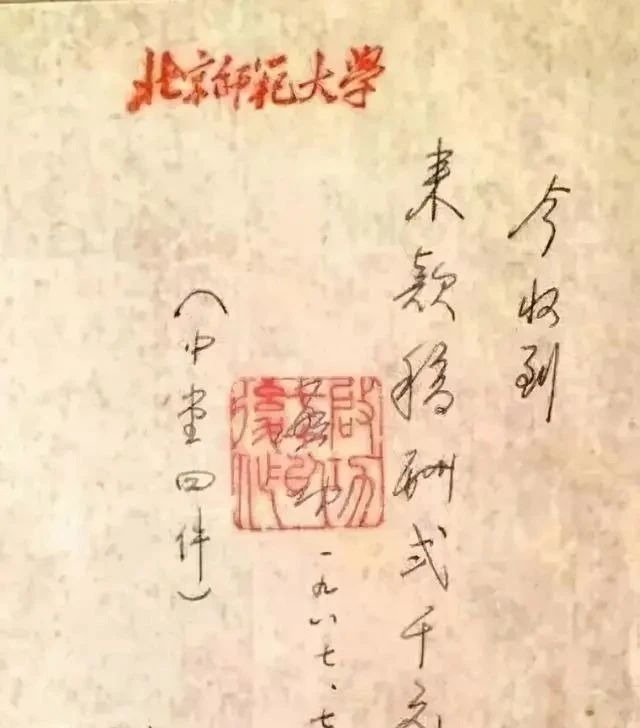 北京师范大学
今收到
来款稿酬弍千元
启功
一九八七.七
(中堂四件)